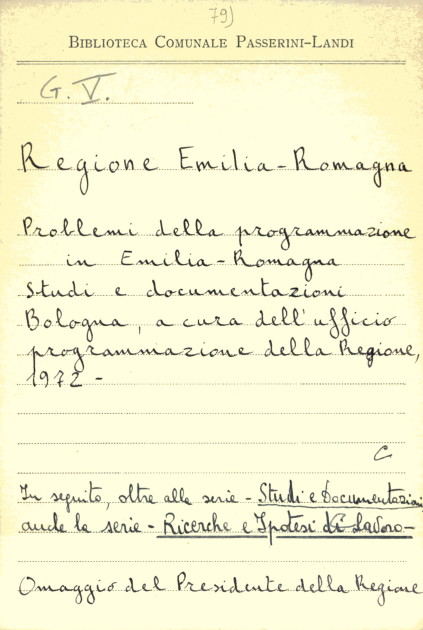 79)
BIBLIOTECA COMUNALE PASSERINI-LANDI
G. V.
Regione Emilia-Romagna
Problemi della programmazione
in Emilia-Romagna
Studi e documentazioni
Bologna, a cura dell'ufficio
programmazione della Regione,
1972 -
C
In seguito, oltre alla serie - Studi e Documentazioni
anche la serie - Ricerche e Ipotesi di Lavoro -
Omaggio del Presidente della Regione